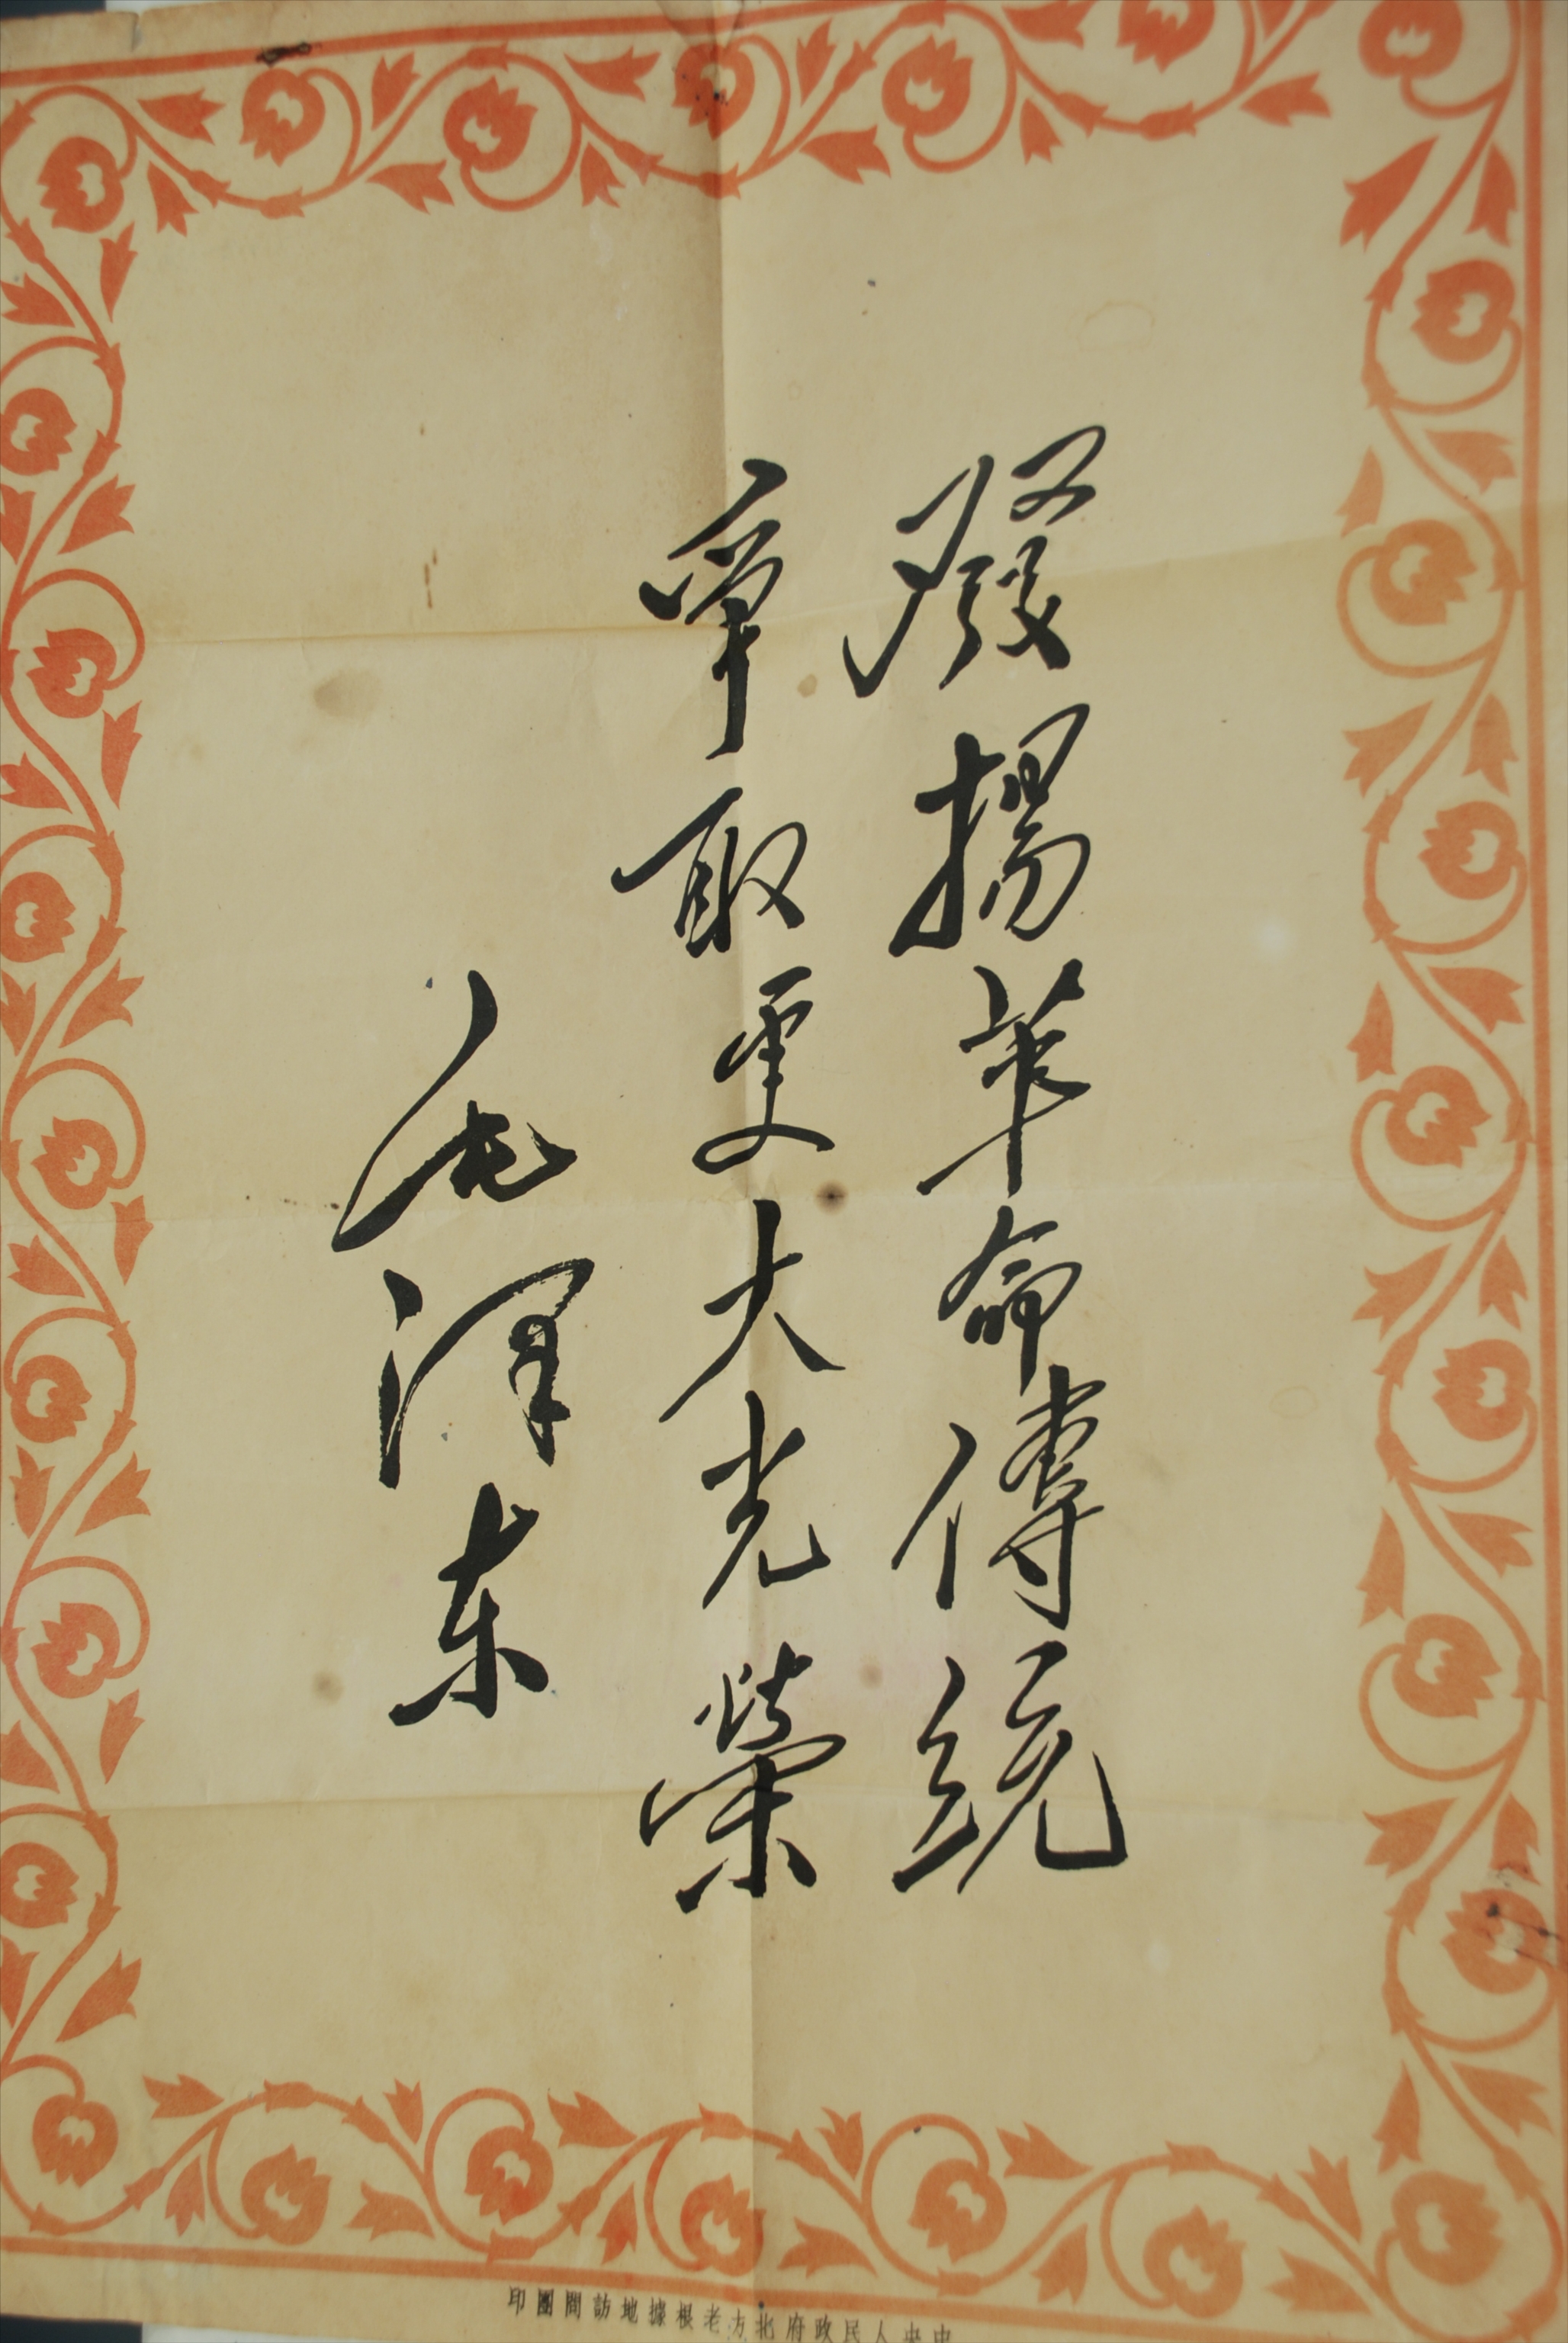 發揚革命傳統
爭取更大光榮
毛泽东
中央人民政府北方老根據地訪問團印